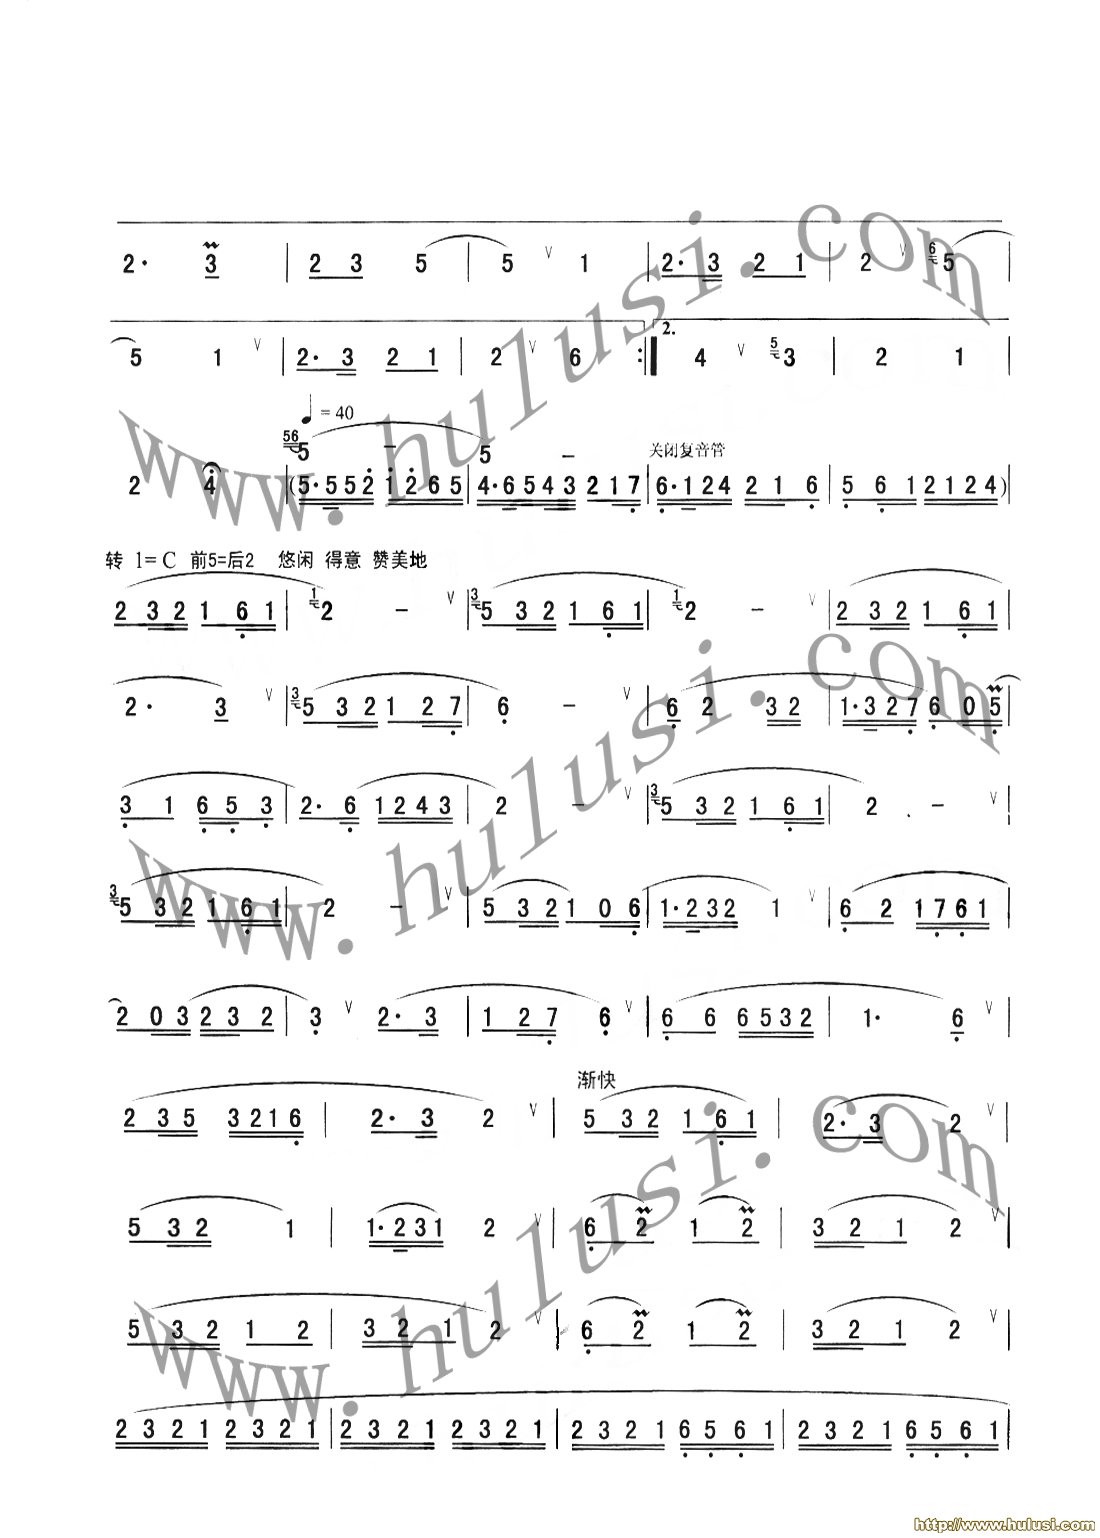 2· 3 | 2 3 5 | 5 ∨ 1 | 2· 3 2 1 | 2 ∨ 6 5 |
5 1 ∨ | 2· 3 2 1 | 2 ∨ 6 :‖ 2. 4 ∨ 5 3 | 2 1 |
♩ = 40
56 5 – 5 – 关闭复音管
2 4 | (5·552 1265 | 4·6543 217 | 6·124 216 | 5 612124) |
转 1=C 前5=后2 悠闲 得意 赞美地
2 32 1 61 | 1 2 – ∨ | 3 5 32 1 61 | 1 2 – ∨ | 2 32 1 61 |
2· 3 ∨ | 3 5 32 1 27 | 6 – ∨ | 6 2 32 | 1·327 6 05 |
3 1 6 5 3 | 2· 6 1243 | 2 – ∨ | 3 5 32 1 61 | 2 – ∨ |
3 5 32 1 61 | 2 – ∨ | 5 32 1 06 | 1·232 1 ∨ | 6 2 1761 |
2 03 23 2 | 3 ∨ 2· 3 | 1 27 6 ∨ | 6 6 6532 | 1· 6 ∨ |
渐快
2 35 3216 | 2· 3 2 ∨ | 5 32 1 61 | 2· 3 2 ∨ |
5 32 1 | 1·231 2 ∨ | 6 2 1 2 | 3 2 1 2 ∨ |
5 32 1 2 | 3 2 1 2 ∨ | 6 2 1 2 | 3 2 1 2 ∨ |
2321 2321 | 2321 2321 | 2321 6561 | 2321 6561 |
www.hulusi.com
www.hulusi.com
www.hulusi.com
http://www.hulusi.com